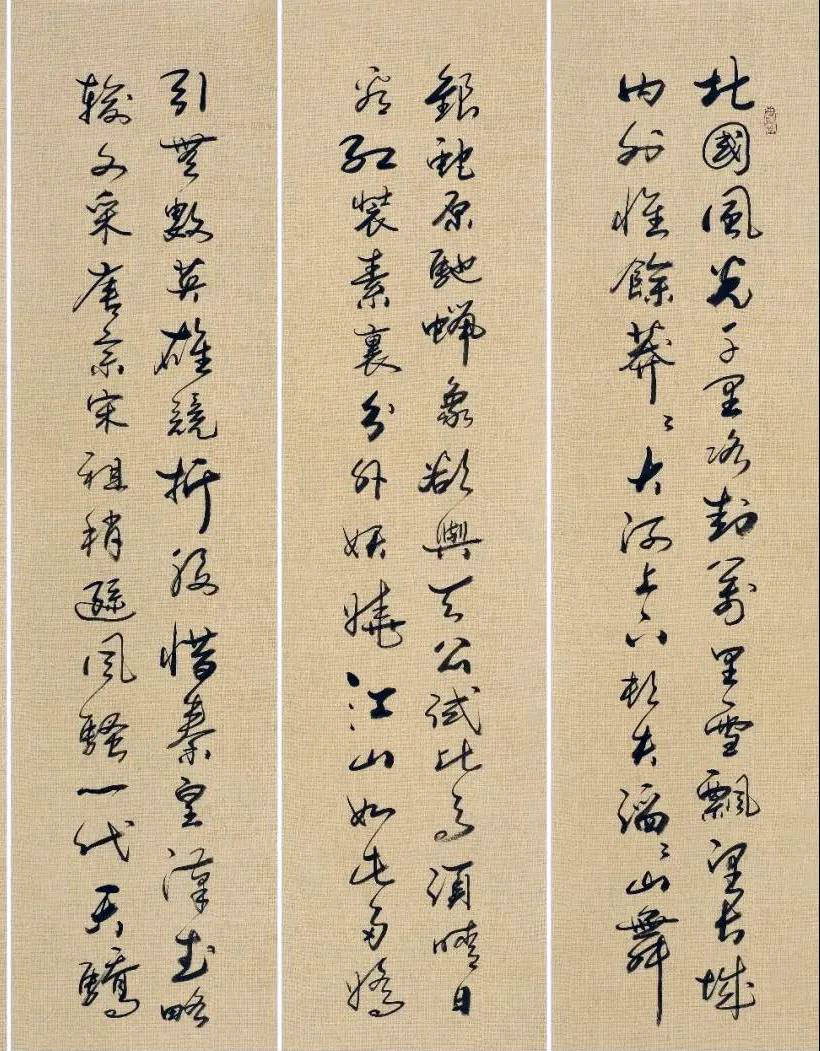 北國風光千里冰封萬里雪飄望長城
内外惟餘莽〻大河上下頓失滔〻山舞
銀蛇原馳蠟象欲與天公試比高須晴日
看紅裝素裹分外妖嬈江山如此多嬌
引無數英雄競折腰惜秦皇漢武略
輸文采唐宗宋祖稍遜風騷一代天驕